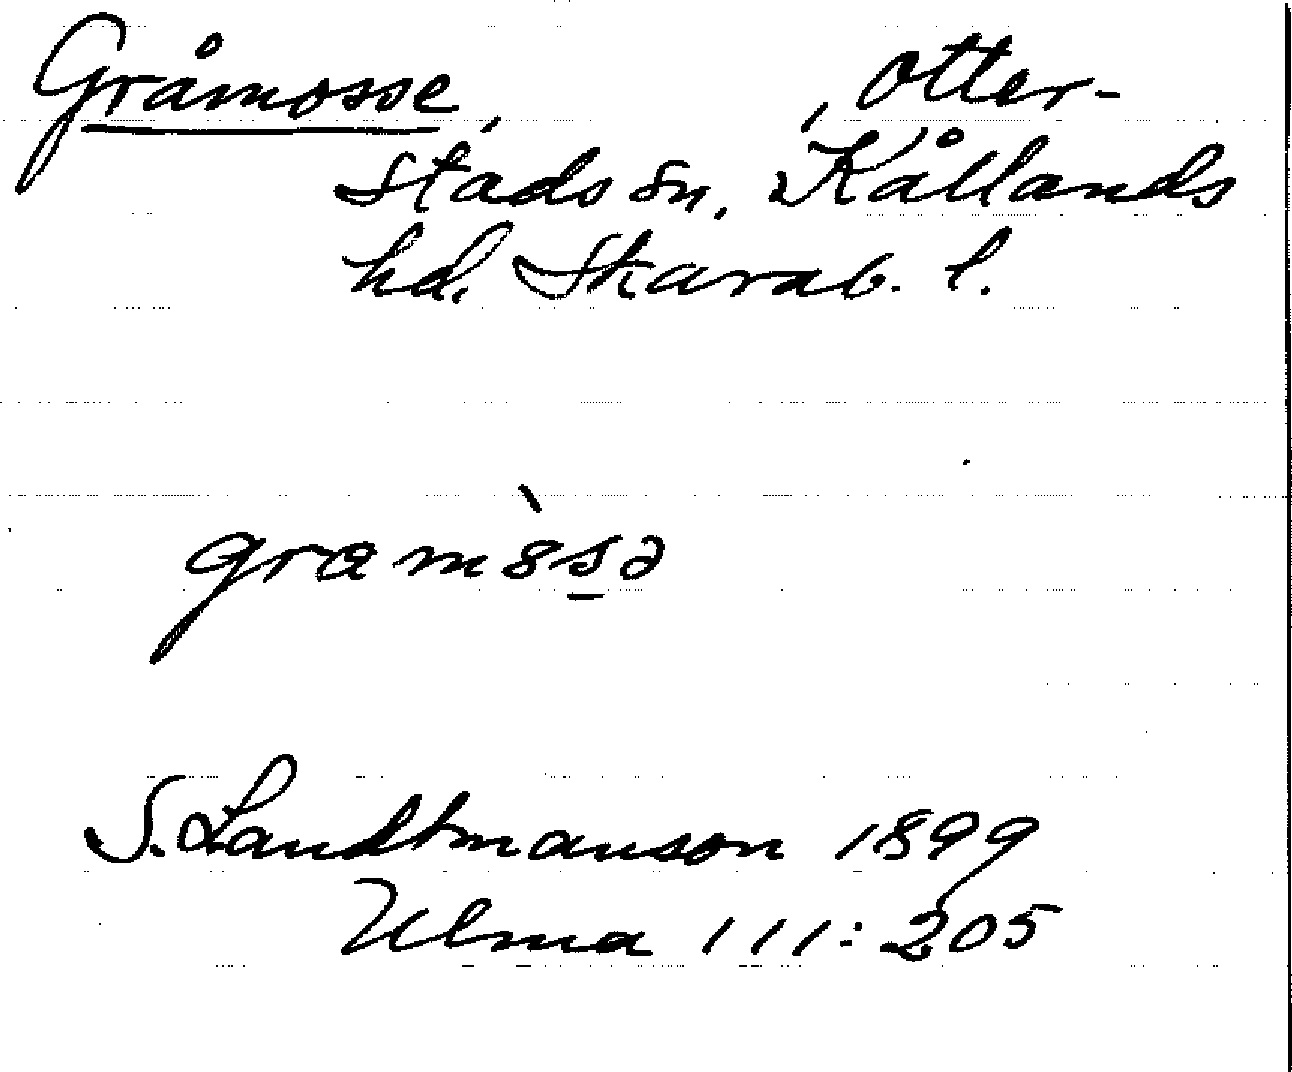 Gråmosse, , Otter-
stads sn. Kållands
hd. Skarab. l.
gramòsə
S. Landtmanson 1899
Ulma 111:205